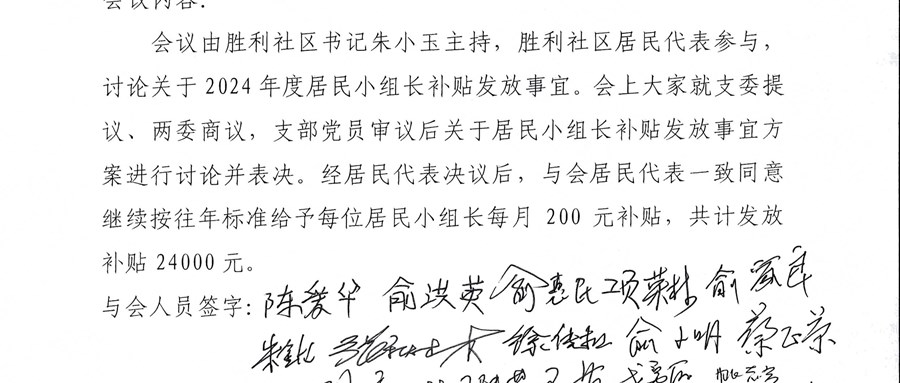 会议内容：
会议由胜利社区书记朱小玉主持，胜利社区居民代表参与，
讨论关于 2024 年度居民小组长补贴发放事宜。会上大家就支委提
议、两委商议，支部党员审议后关于居民小组长补贴发放事宜方
案进行讨论并表决。经居民代表决议后，与会居民代表一致同意
继续按往年标准给予每位居民小组长每月 200 元补贴，共计发放
补贴 24000 元。
与会人员签字：陈爱华 俞洪英 俞惠民 项荣林 俞
徐 俞小明 蔡正荣